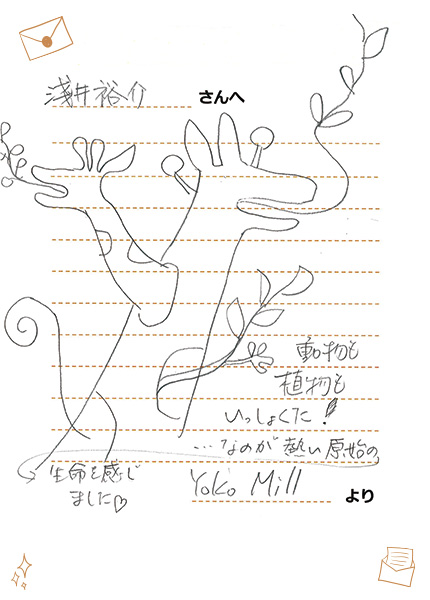 浅井裕介 さんへ
動物も
植物も
いっしょくた!
…なのが熱い原始の
生命を感じ
ました♡
Yoko Mill より